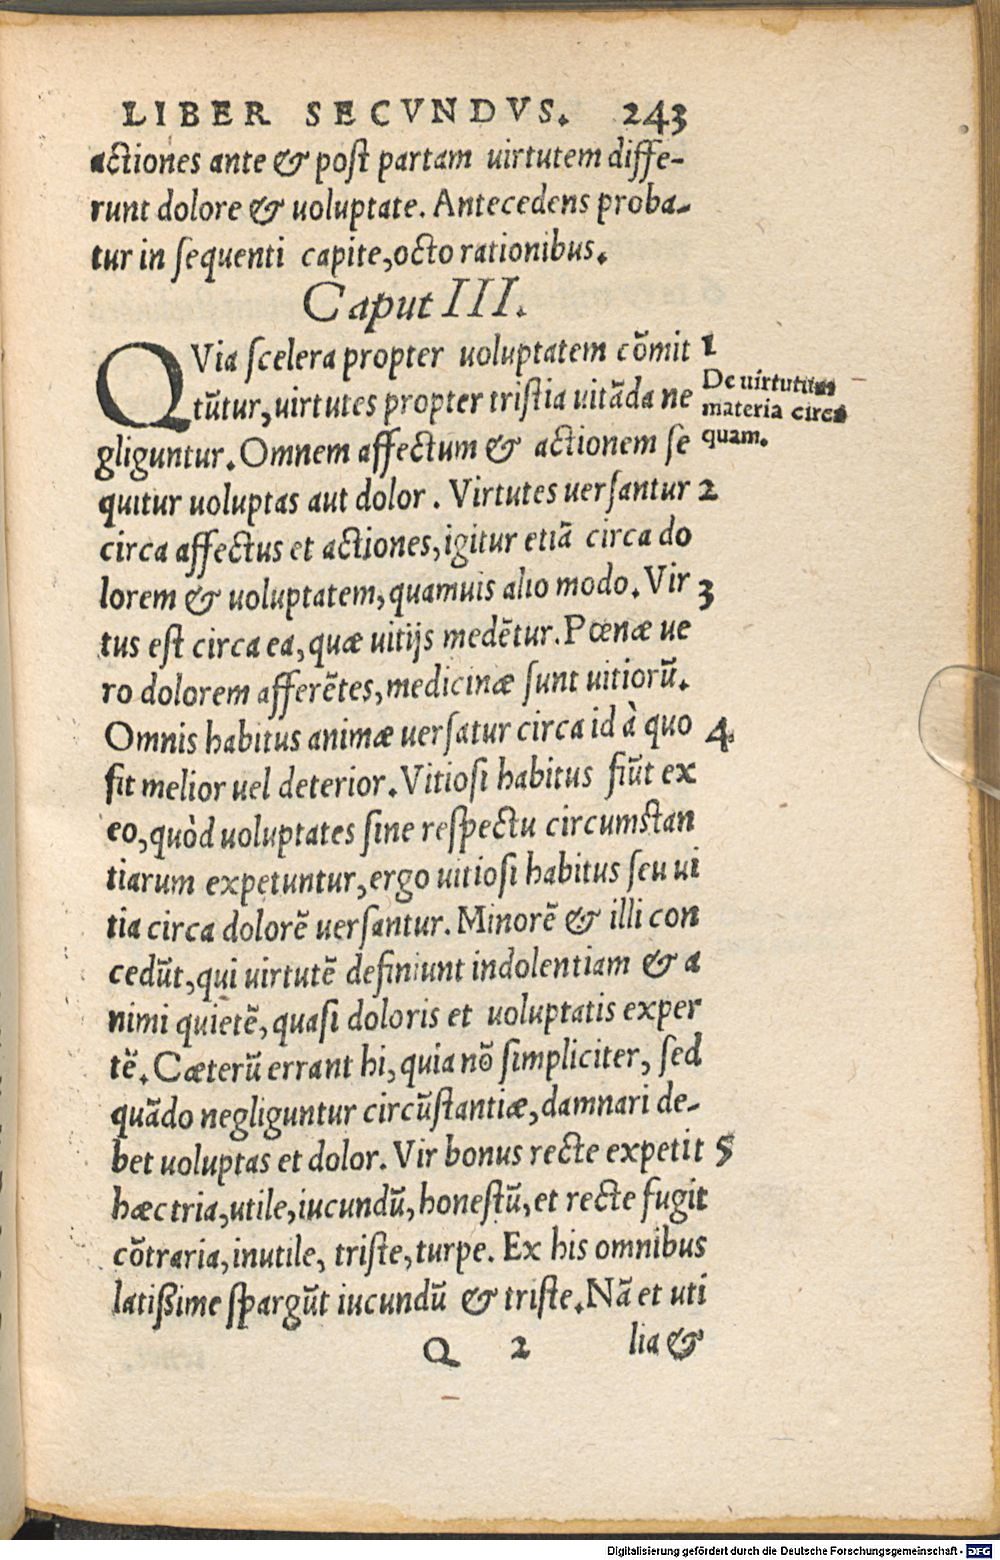 LIBER SECVNDVS. 243
actiones ante & post partam uirtutem diffe-
runt dolore & uoluptate. Antecedens proba-
tur in sequenti capite, octo rationibus.
Caput III.
QVia scelera propter uoluptatem cõmit 1
tũtur, uirtutes propter tristia uitãda ne
gliguntur. Omnem affectum & actionem se
quitur uoluptas aut dolor. Virtutes uersantur 2
circa affectus et actiones, igitur etiã circa do
lorem & uoluptatem, quamuis alio modo. Vir 3
tus est circa ea, quæ uitijs medẽtur. Pœnæ ue
ro dolorem afferẽtes, medicinæ sunt uitiorũ.
Omnis habitus animæ uersatur circa id à quo 4
fit melior uel deterior. Vitiosi habitus fiũt ex
eo, quòd uoluptates sine respectu circumstan
tiarum expetuntur, ergo uitiosi habitus seu ui
tia circa dolorẽ uersantur. Minorẽ & illi con
cedũt, qui uirtutẽ definiunt indolentiam & a
nimi quietẽ, quasi doloris et uoluptatis exper
tẽ. Cæterũ errant hi, quia nõ simpliciter, sed
quãdo negliguntur circũstantiæ, damnari de-
bet uoluptas et dolor. Vir bonus recte expetit 5
hæc tria, utile, iucundũ, honestũ, et recte fugit
cõtraria, inutile, triste, turpe. Ex his omnibus
latißime spargũt iucundũ & triste. Nã et uti
Q 2 lia &
De uirtutum
materia circa
quam.
Digitalisierung gefördert durch die Deutsche Forschungsgemeinschaft - DFG